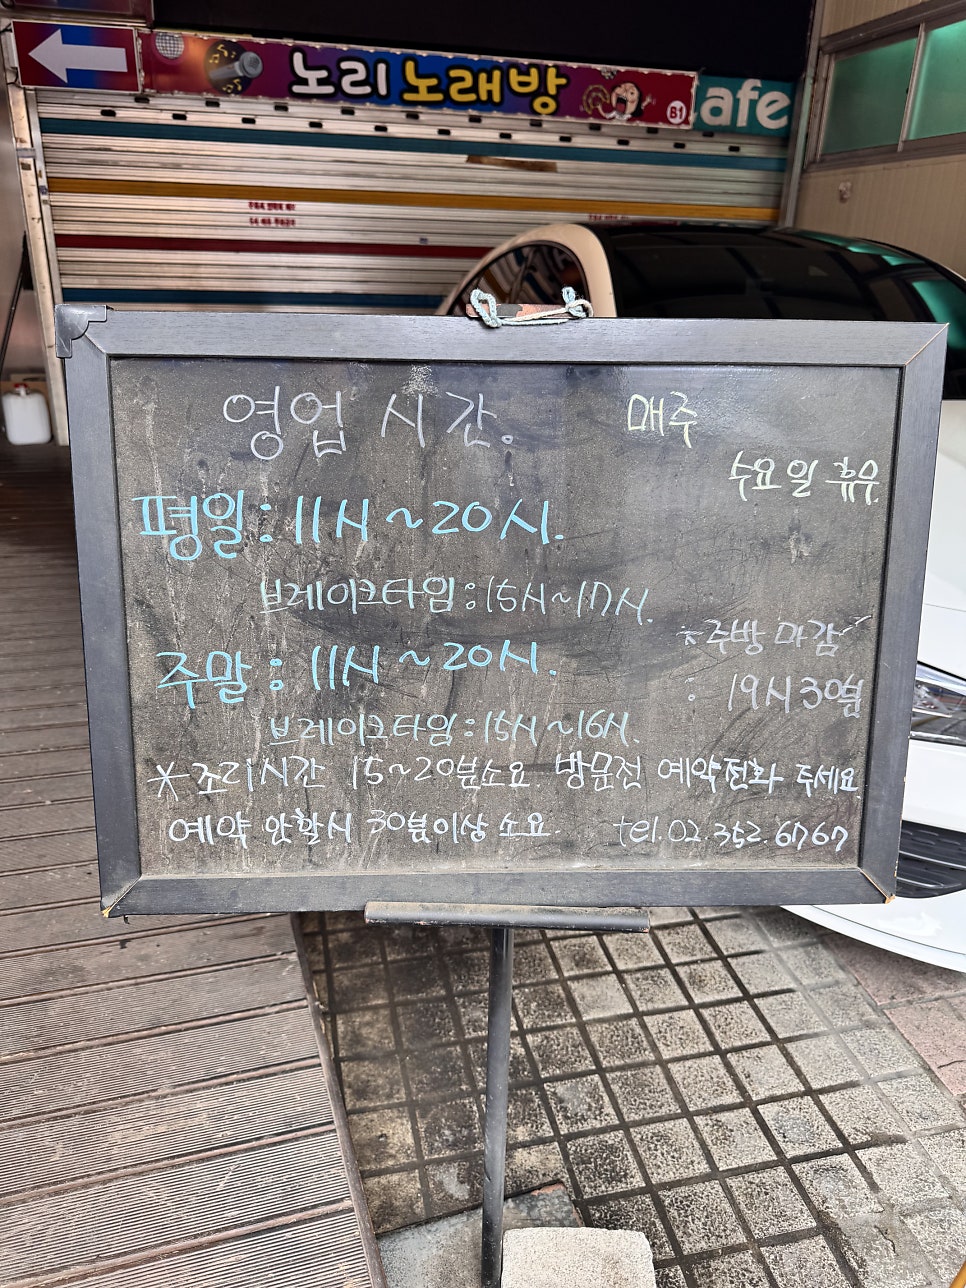 노리노래방
B1
afe
영업 시간.
매주
수요일 휴무.
평일 : 11시 ~ 20시.
브레이크타임 : 15시~17시.
※주방 마감
: 19시 30분
주말 : 11시 ~ 20시.
브레이크타임 : 15시~16시.
* 조리시간 15~20분소요 방문전 예약전화 주세요
예약 안할시 30분이상 소요.
tel. 02. 352. 6767